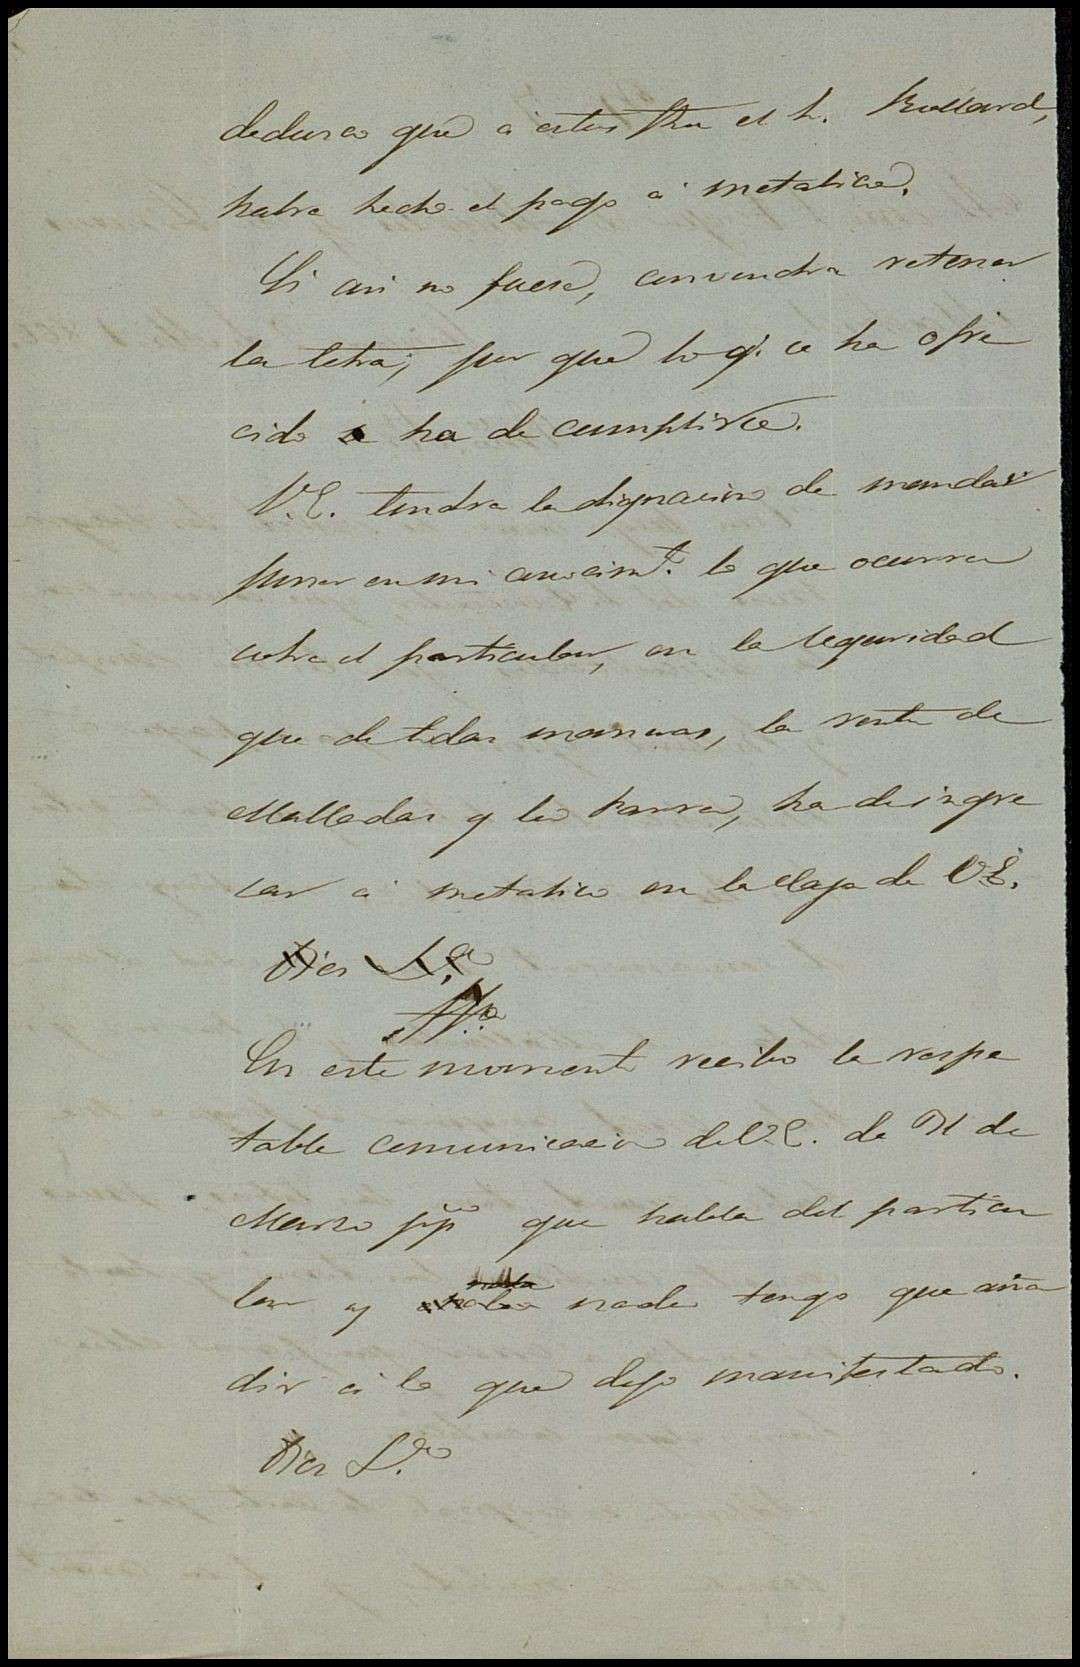 deduzco que á estas fhas el S. Bullard,
habra hecho el pago á metalico.
Si asi no fuese, convendra retener
la letra, por que lo q. se ha ofre
cido se ha de cumplirse.
V.E. tendra la dignacion de mandar
poner en mi conocimto. lo que ocurra
sobre el particular, en la seguridad
que de todas maneras, la venta de
Malladas y la Parra, ha de ingre
sar á metalico en la Caja de V.E.
Dios
En este momento recibo la respe
table comunicacion de V.E. de 31 de
Marzo ppdo que habla del particu
lar y nada tengo que aña
dir á lo que dejo manifestado.
Dios